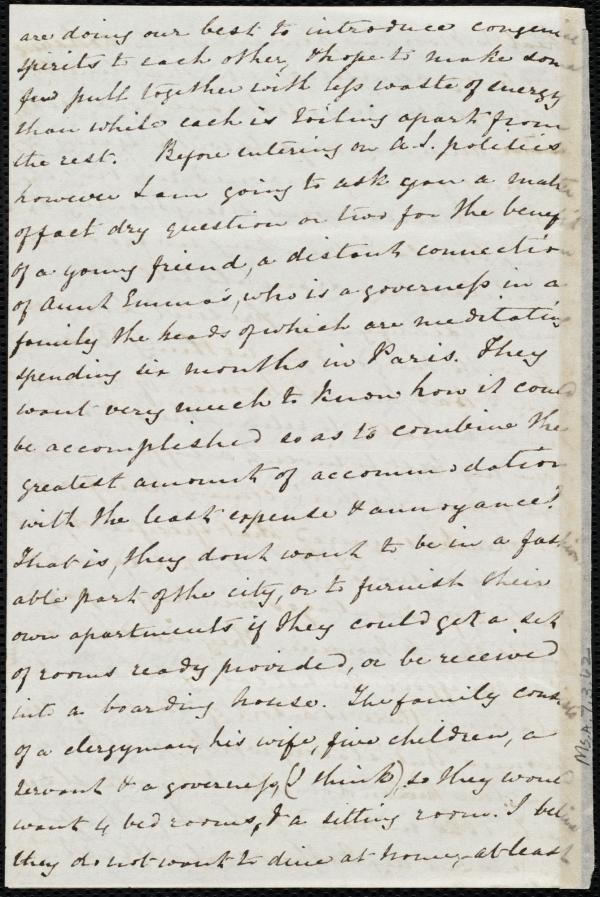 are doing our best to introduce congenial
spirits to each other, & hope to make some
few pull together with less waste of energy
than while each is toiling apart from
the rest. Before entering on A.S. politics
however I am going to ask you a matter
of fact dry question or two for the benefit
of a young friend, a distant connection
of Aunt Emma's, who is a governess in a
family the heads of which are meditating
spending six months in Paris. They
want very much to know how it could
be accomplished so as to combine the
greatest amount of accommodation
with the least expense & annoyance?
That is, they dont want to be in a fashion
able part of the city, or to furnish their
own apartments if they could get a set
of rooms ready provided, or be received
into a boarding house. The family consists
of a clergyman, his wife, five children, a
servant & a governess, (I think) so they would
want 4 bed rooms, & a sitting room. I believe
they do not want to dine at home, at least
Ms.A.7.3.62